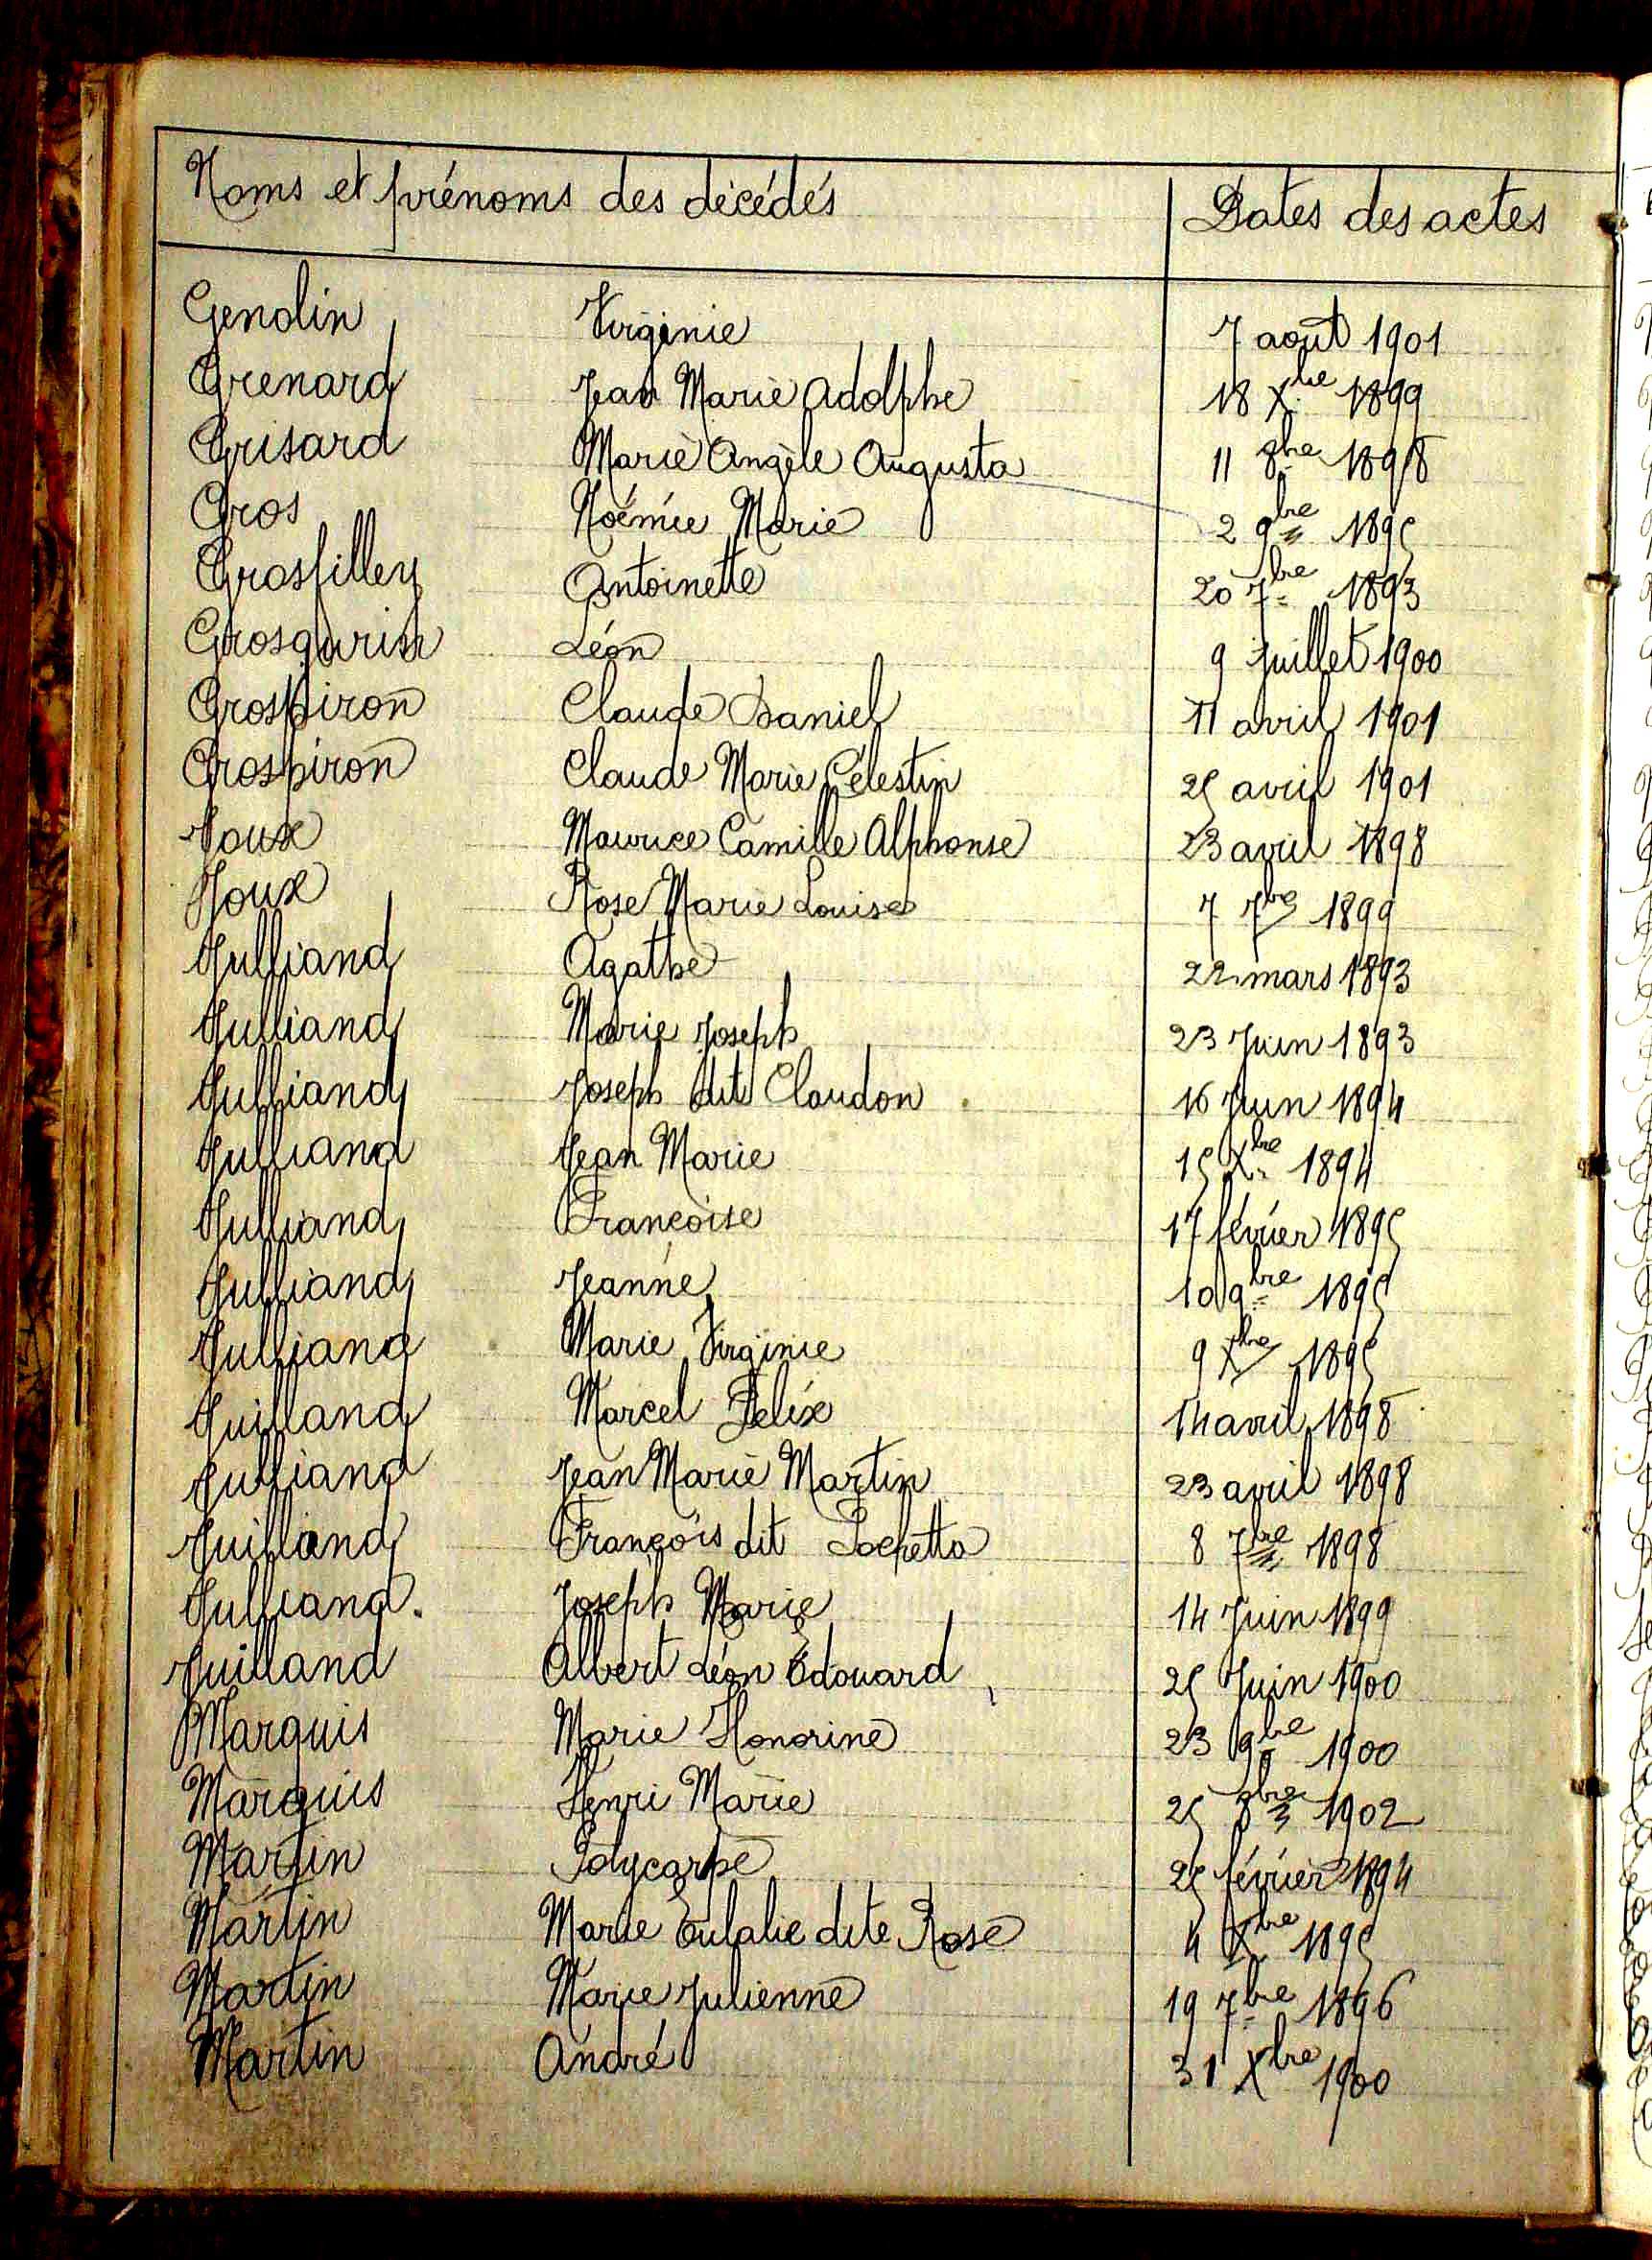 Noms et prénoms des décédés Dates des actes
Gendin Virginie 7 août 1901
Grenard Jean Marie Adolphe 18 Xbre 1899
Grisard Marie Angèle Augusta 11 8bre 1898
Gros Noémie Marie 2 9bre 1895
Grosfilley Antoinette 20 7bre 1893
Grosgurin Léon 9 Juillet 1900
Grospiron Claude Daniel 11 avril 1901
Grospiron Claude Marie Célestin 25 avril 1901
Joux Maurice Camille Alphonse 23 avril 1898
Joux Rose Marie Louise 7 7bre 1899
Julliand Agathe 22 mars 1893
Julliand Marie Joseph 23 Juin 1893
Julliand Joseph dit Claudon 16 Juin 1894
Julliand Jean Marie 15 Xbre 1894
Julliand Françoise 17 février 1895
Julliand Jeanne 10 9bre 1895
Julliand Marie Virginie 9 Xbre 1895
Juilland Marcel Félix 14 avril 1898
Julliand Jean Marie Martin 23 avril 1898
Juilland François dit Pochetta 8 7bre 1898
Julliand. Joseph Marie 14 Juin 1899
Juilland Albert Léon Edouard 25 Juin 1900
Marquis Marie Honorine 23 9bre 1900
Marquis Henri Marie 25 8bre 1902
Martin Polycarpe 25 février 1894
Martin Marie Eulalie dite Rose 4 Xbre 1895
Martin Marie Julienne 19 7bre 1896
Martin André 31 Xbre 1900